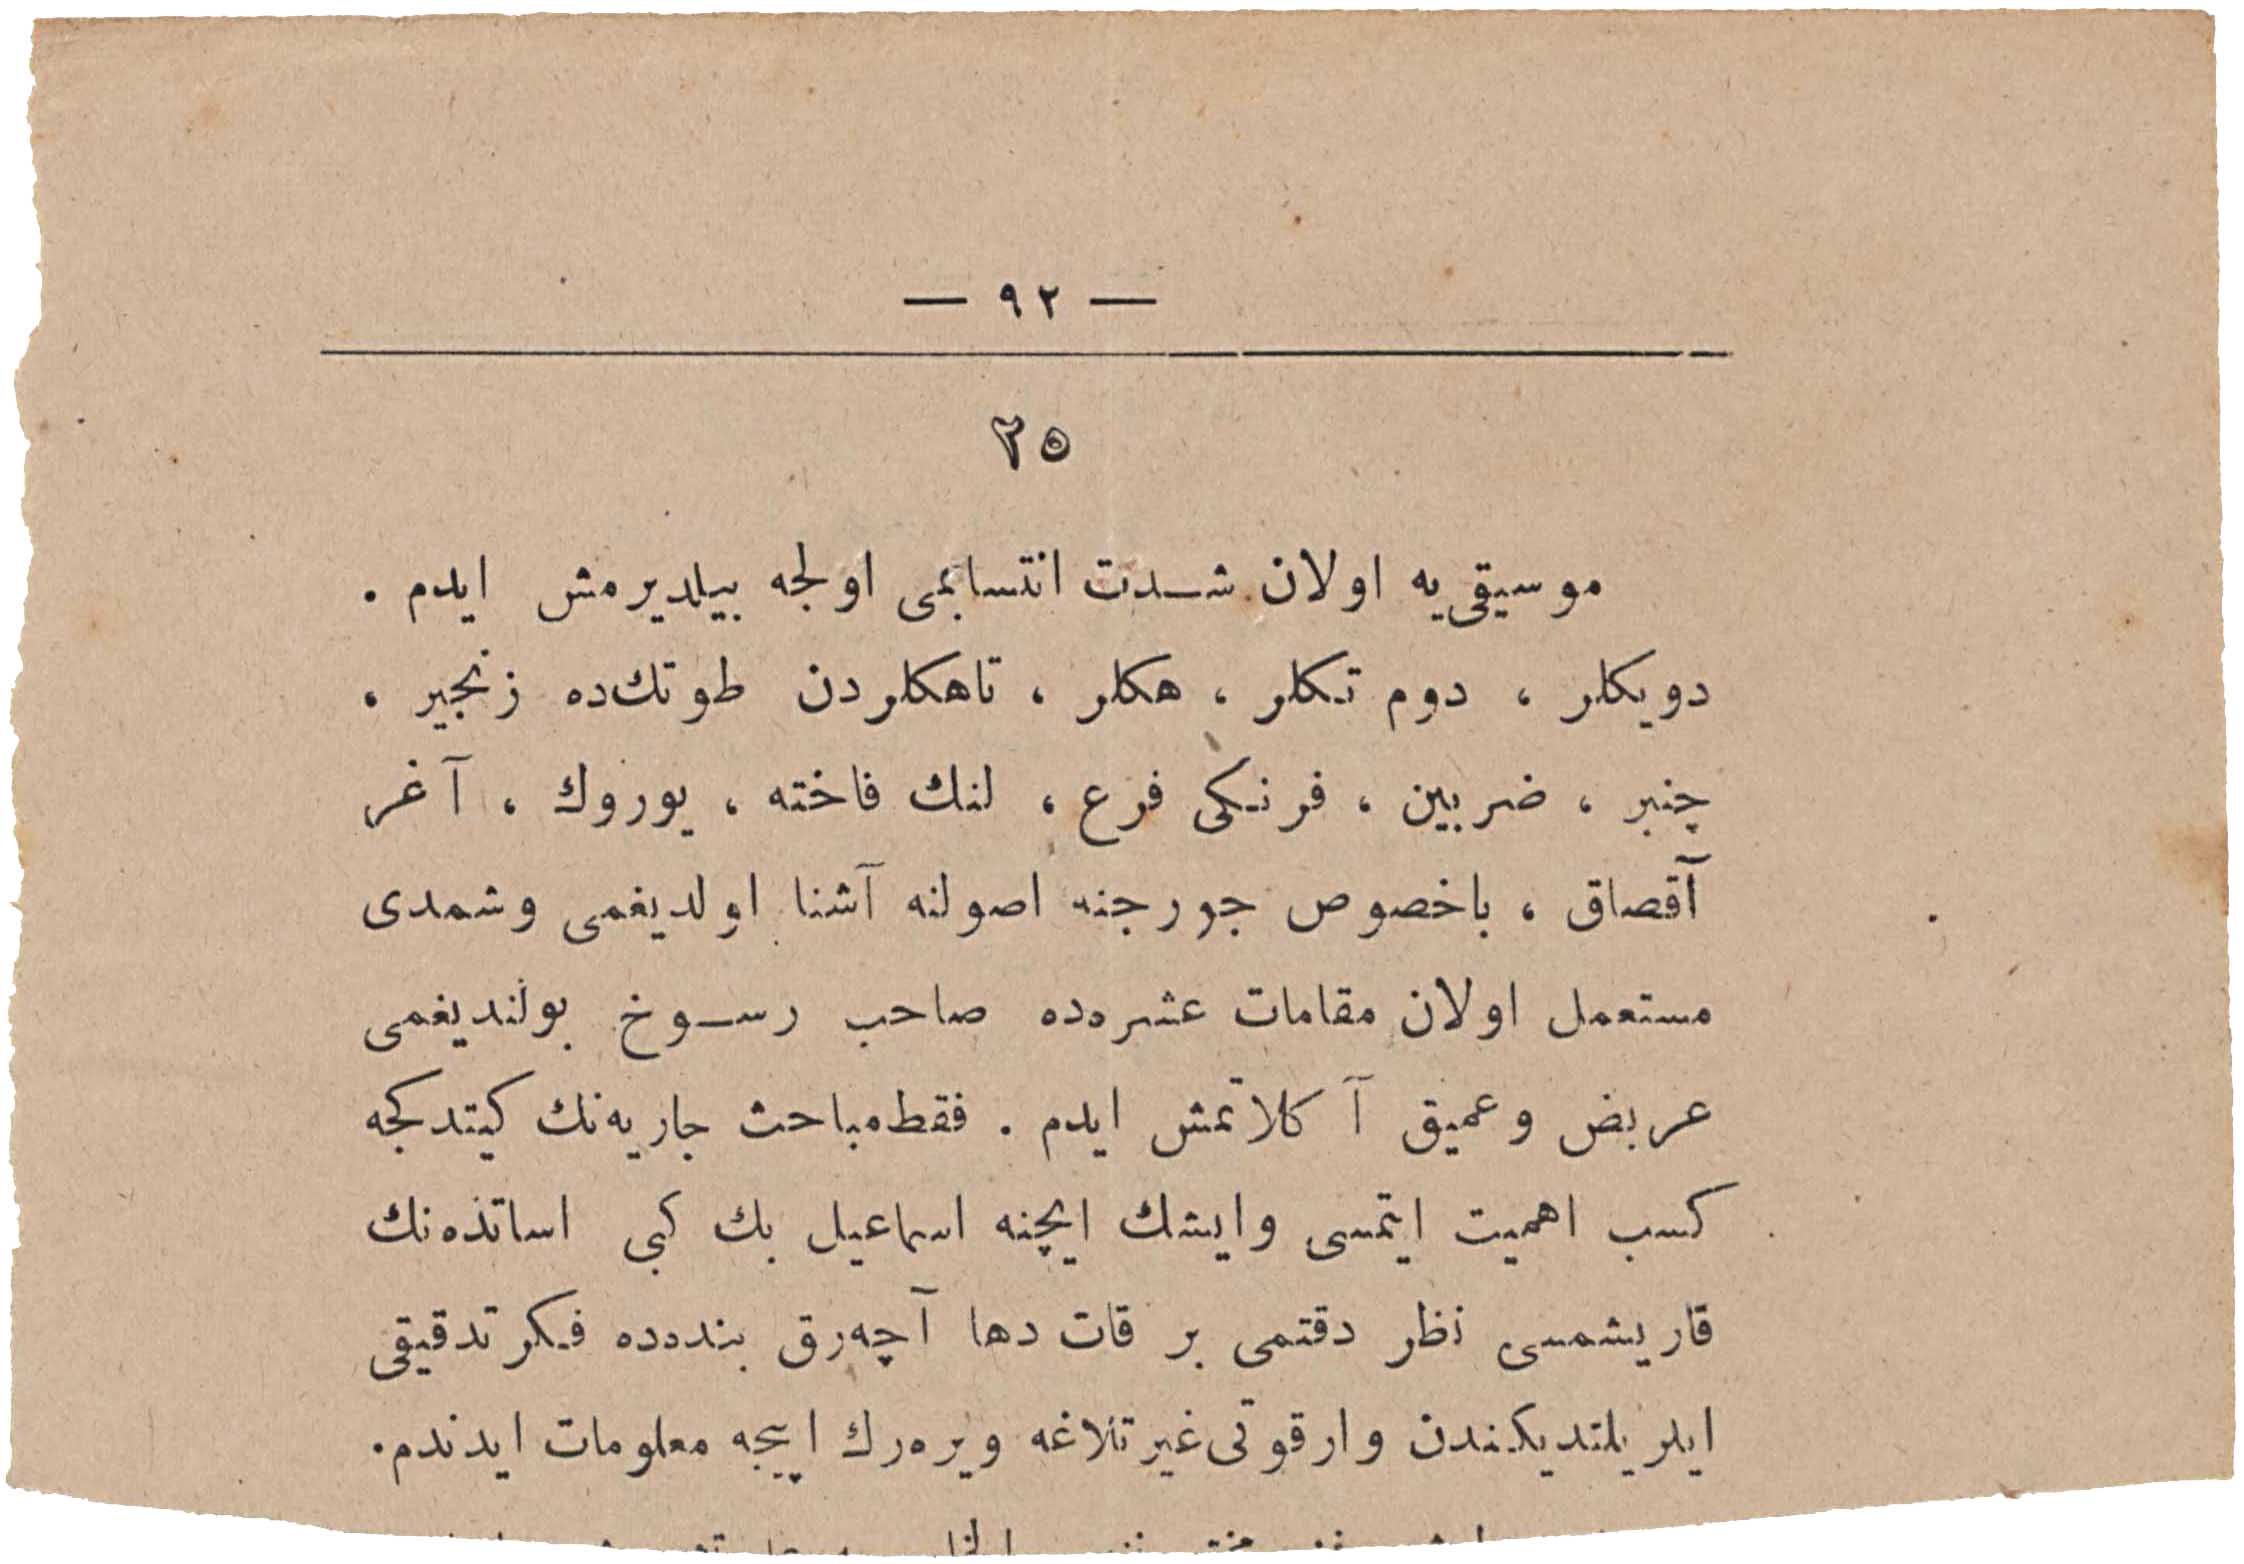 — ٩٢ —
٢٥
موسیقی‌یه اولان شـدت انتسابمی اولجه بیلدیرمش ایدم .
دویکلر ، دوم تکلر ، هکلر ، تاهکلردن طوتك‌ده زنجیر ،
چنبر ، ضربین ، فرنکی فرع ، لنك فاخته ، یوروك ، آغر
آقصاق ، باخصوص جورجنه اصولنه آشنا اولدیغمی وشمدی
مستعمل اولان مقامات عشره‌ده صاحب رسـوخ بولندیغمی
عریض وعمیق آکلاتمش ایدم . فقط مباحث جاریه‌نك کیتدکجه
کسب اهمیت ایتمسی وایشك ایچنه اسماعیل بك کبی اساتذه‌نك
قاریشمسی نظر دقتمی بر قات دها آچه‌رق بنده‌ده فکر تدقیقی
ایلریلتدیکندن وارقوتی غیرتلاغه ویره‌رك اییجه معلومات ایدندم.